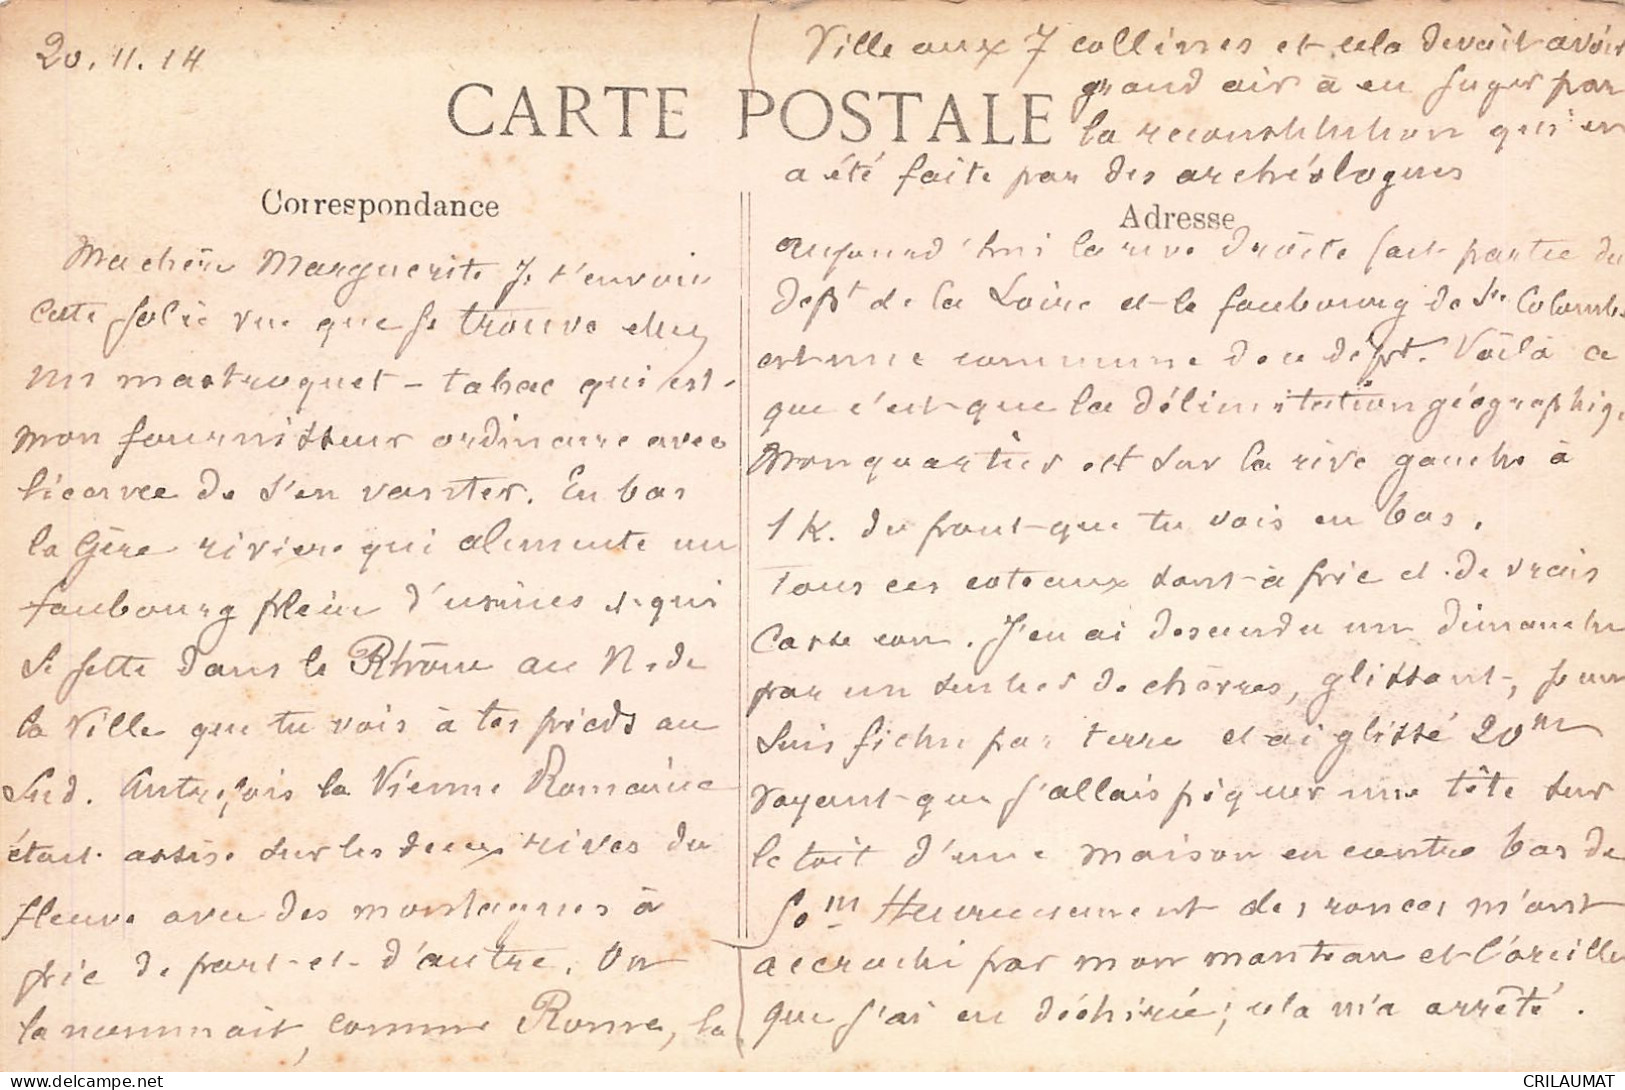 20.11.14
CARTE POSTALE
Correspondance
Ma chère Marguerite Je t'envoie
cette jolie vue que je trouve chez
un mastroquet - tabac qui est
mon fournisseur ordinaire avec
licence de s'en vanter. En bas
la Gère rivière qui alimente un
faubourg plein d'usines et qui
se jette dans le Rhône au N. de
la Ville que tu vois à tes pieds au
Sud. Autrefois la Vienne Romaine
était assise sur les deux rives du
fleuve avec des montagnes à
pic de part et d'autre. On
la nommait, comme Rome, la
Ville aux 7 collines et cela devait avoir
grand air à en juger par
la reconstitution qui en
a été faite par des archéologues
Adresse
aujourd'hui la rive droite fait partie du
dept de la Loire et le faubourg de Ste Colombe
est une commune de ce dépt. Voilà ce
que c'est que la délimitation géographiq.
Mon quartier est sur la rive gauche à
1 K. du pont que tu vois en bas.
Tous ces coteaux sont à pic et de vrais
casse cou. J'en ai descendu un dimanche
par un sentier de chèvres, glissant, je me
suis fichu par terre et ai glissé 20m
voyant que j'allais piquer une tête sur
le toit d'une maison en contre bas de
50m Heureusement des ronces m'ont
accroché par mon manteau et l'oreille
que j'ai eu déchirée; cela m'a arrêté.
CRILAUMAT